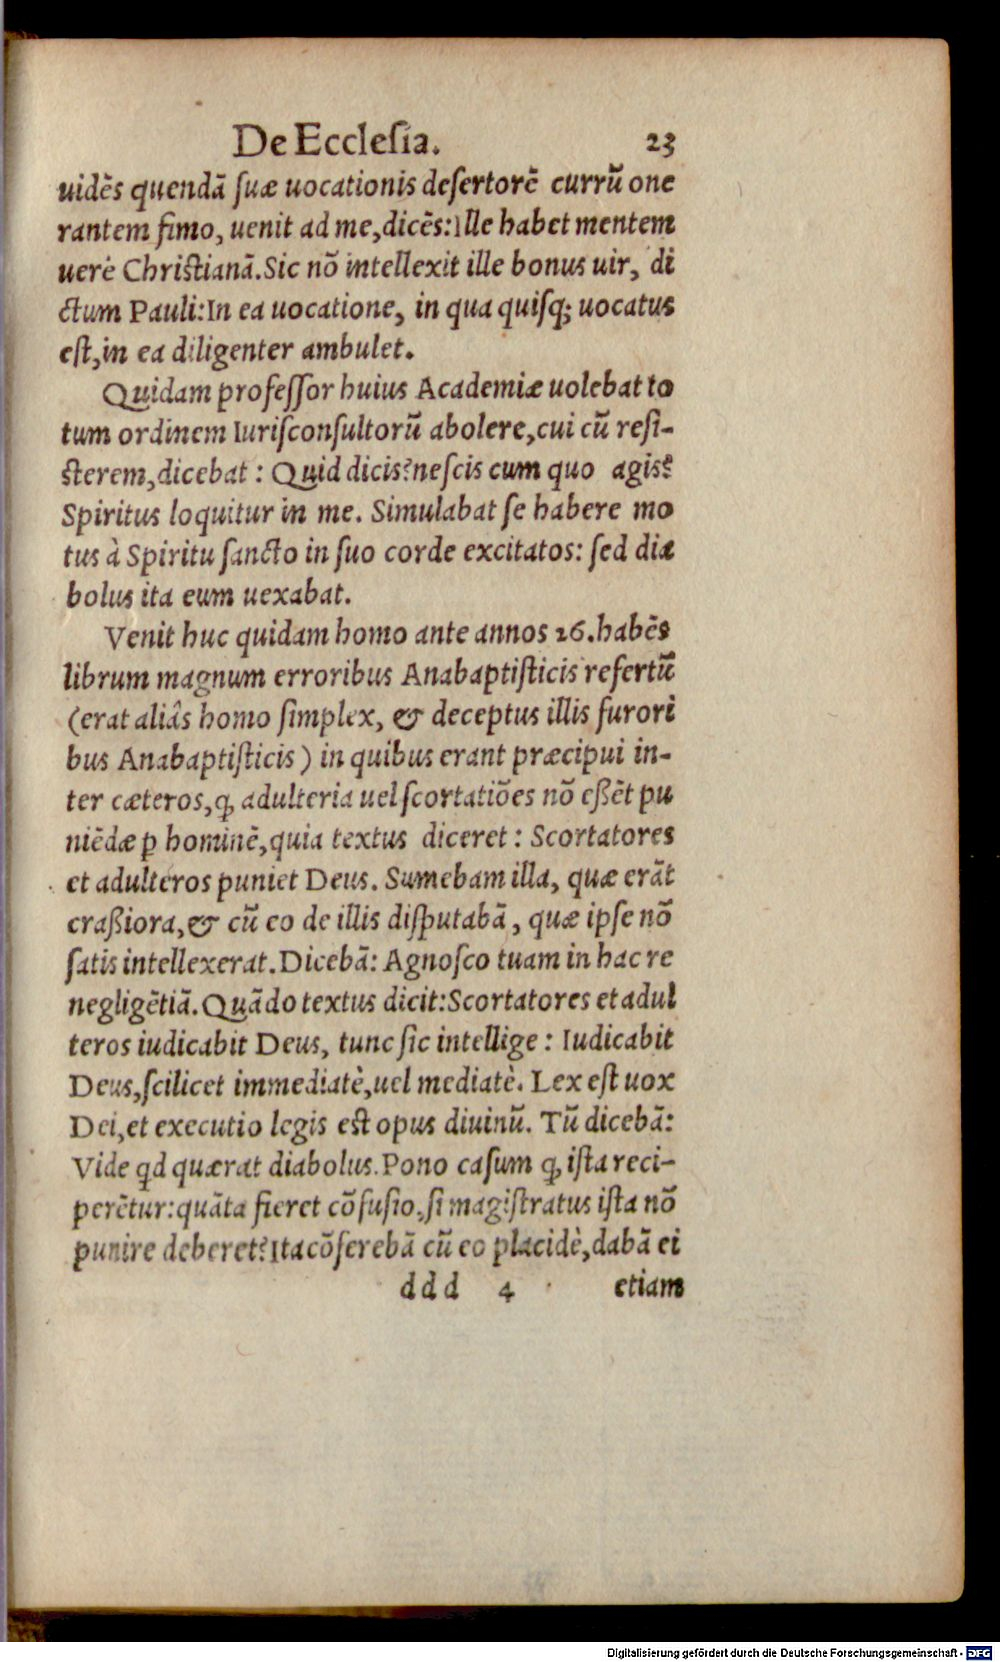 De Ecclesia. 23
uidēs quendā ſuæ uocationis deſertorē currū one
rantem fimo, uenit ad me, dicēs: Ille habet mentem
uerè Chriſtianā. Sic nō intellexit ille bonus uir, di
ctum Pauli: In ea uocatione, in qua quiſq; uocatus
eſt, in ea diligenter ambulet.
Quidam profeſſor huius Academiæ uolebat to
tum ordinem Iuriſconſultorū abolere, cui cū reſi-
ſterem, dicebat: Quid dicis? neſcis cum quo agis?
Spiritus loquitur in me. Simulabat ſe habere mo
tus à Spiritu ſancto in ſuo corde excitatos: ſed dia
bolus ita eum uexabat.
Venit huc quidam homo ante annos 26. habēs
librum magnum erroribus Anabaptiſticis refertū
(erat aliâs homo ſimplex, & deceptus illis furori
bus Anabaptiſticis) in quibus erant præcipui in-
ter cæteros, ꝙ adulteria uel ſcortatiōes nō eßēt pu
niēdæ ꝑ hominē, quia textus diceret: Scortatores
et adulteros puniet Deus. Sumebam illa, quæ erāt
craßiora, & cū eo de illis diſputabā, quæ ipſe nō
ſatis intellexerat. Dicebā: Agnoſco tuam in hac re
negligētiā. Quādo textus dicit: Scortatores et adul
teros iudicabit Deus, tunc ſic intellige: Iudicabit
Deus, ſcilicet immediatè, uel mediatè. Lex eſt uox
Dei, et executio legis eſt opus diuinū. Tū dicebā:
Vide qd quærat diabolus. Pono caſum ꝙ iſta reci-
perētur: quāta fieret cōfuſio, ſi magiſtratus iſta nō
punire deberet? Ita cōferebā cū eo placidè, dabā ei
ddd 4 etiam
Digitalisierung gefördert durch die Deutsche Forschungsgemeinschaft - DFG